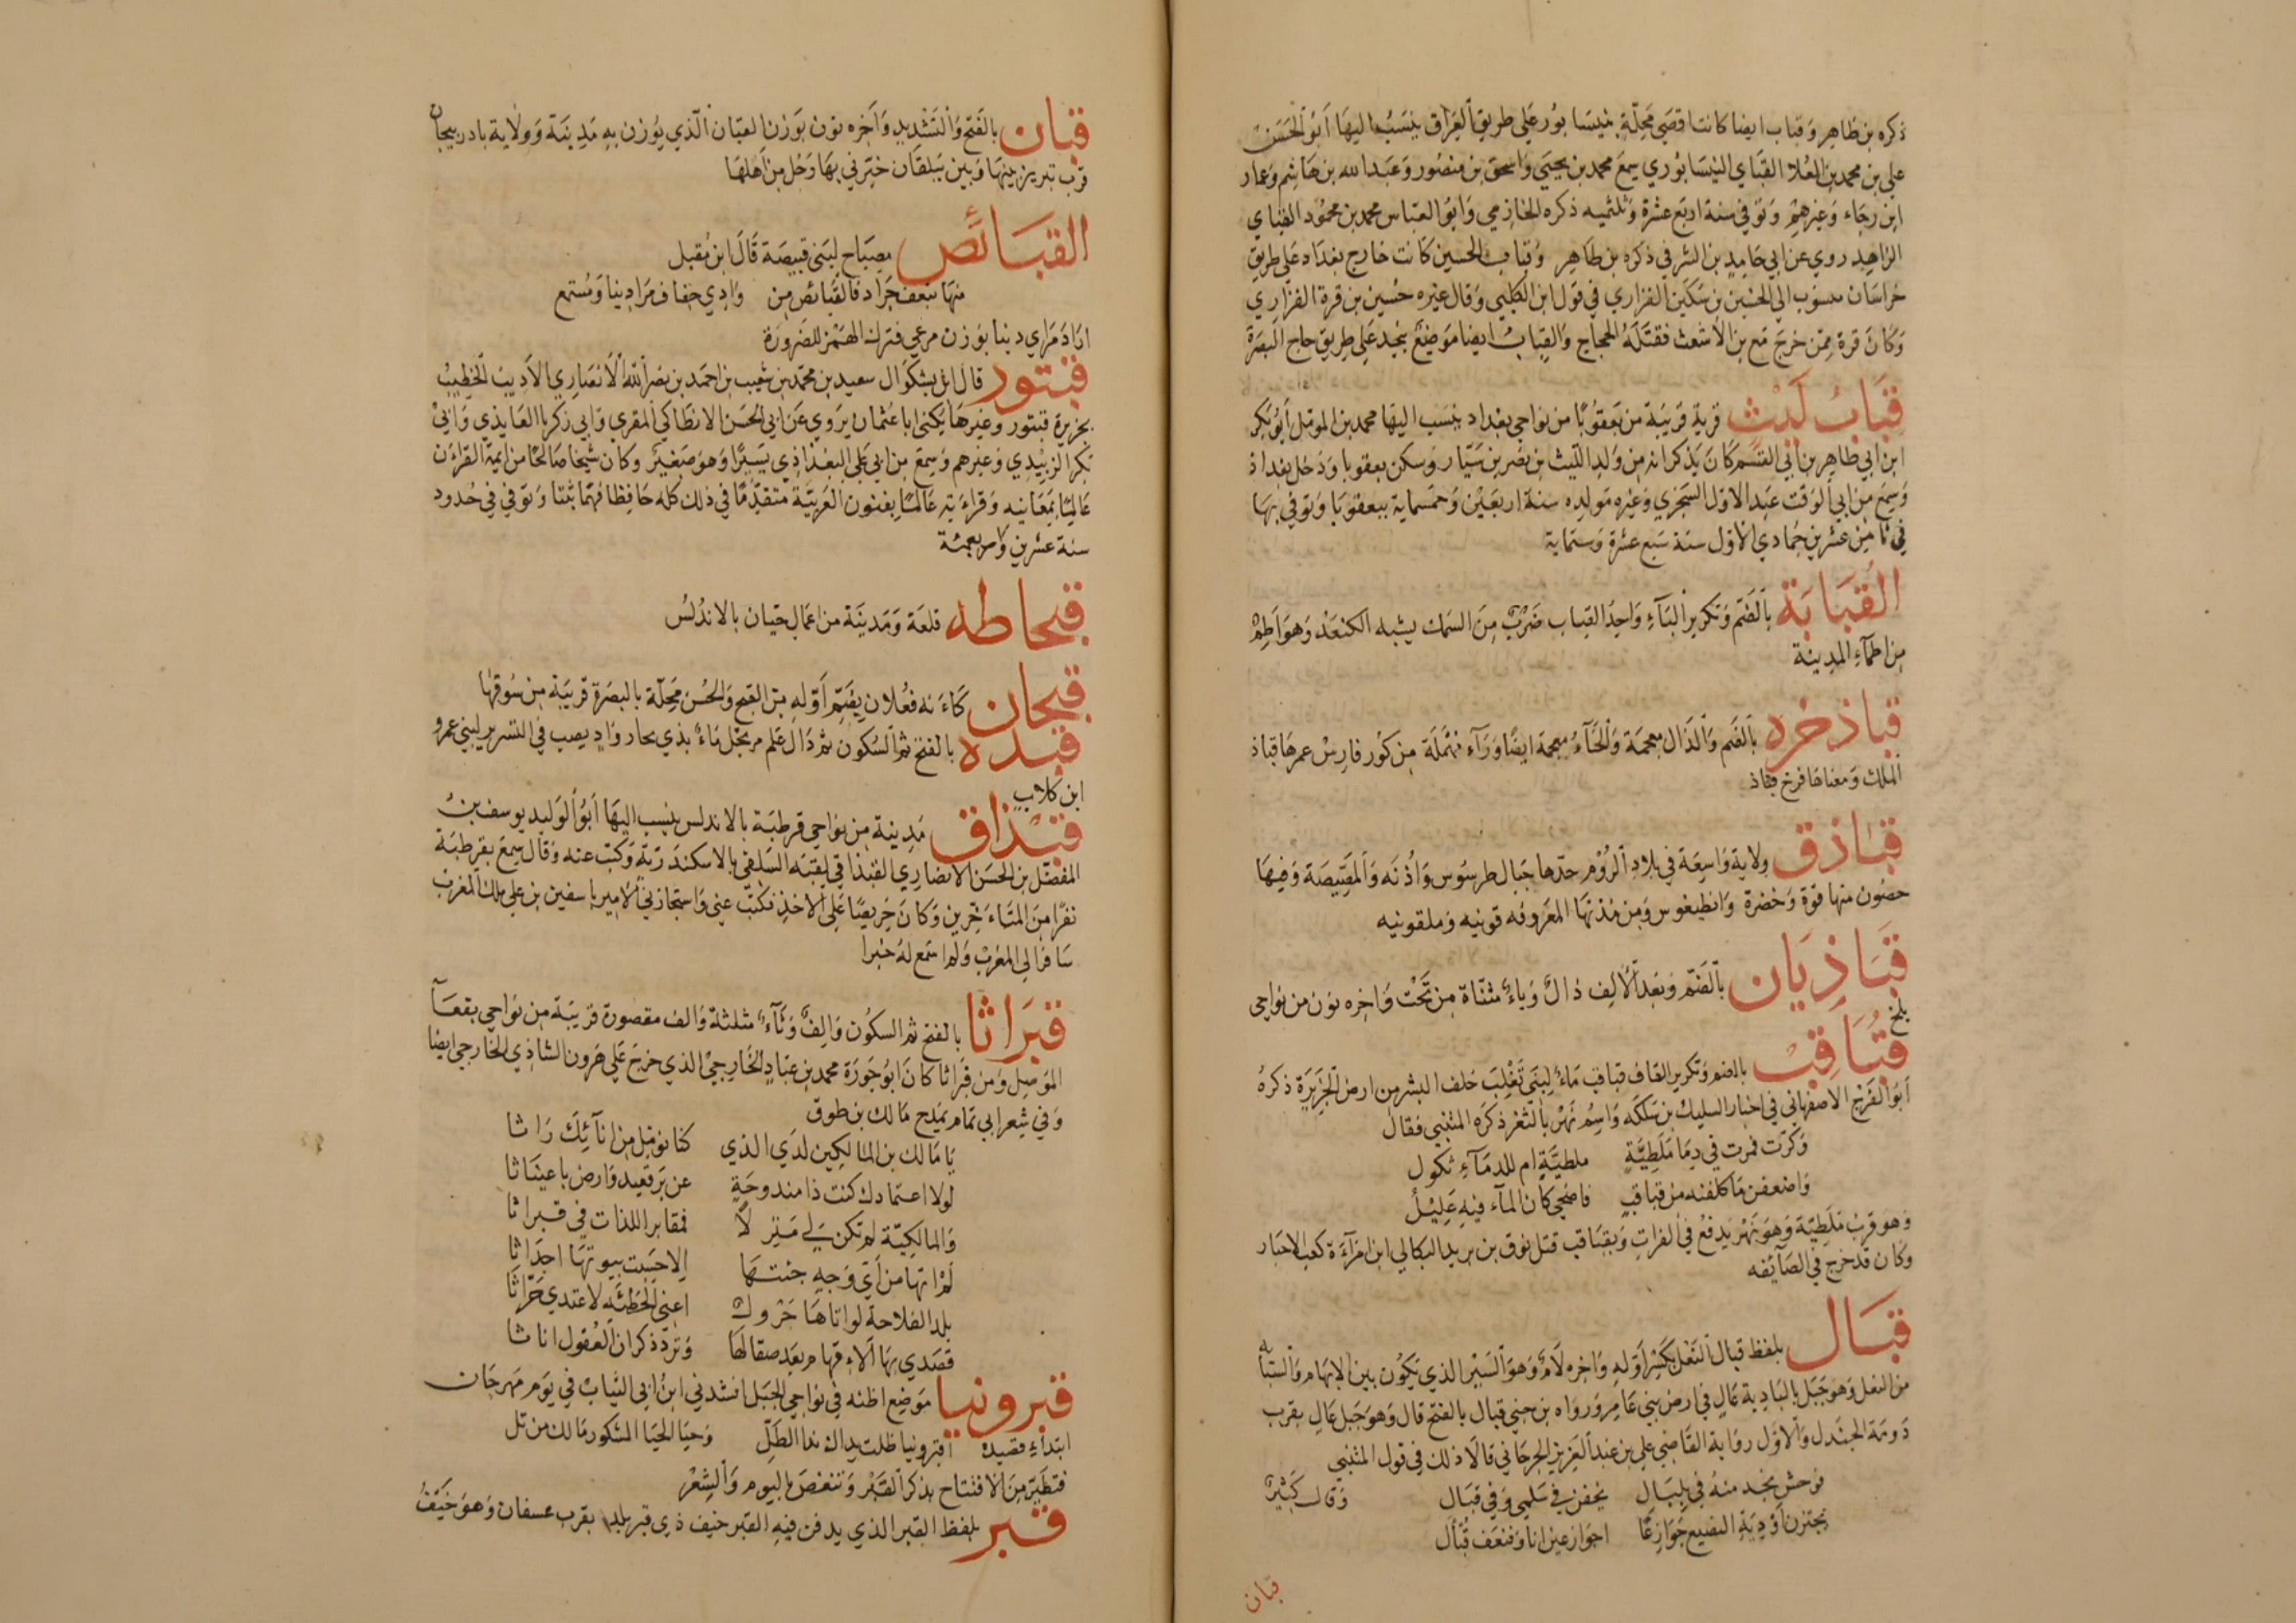 ذكره بن طاهر وقباب ايضا كانت اقصى محلة بنيسابور على طريق العراق ينسب اليها ابو الحسن
علي بن محمد بن العلا القبابي النيسابوري سمع محمد بن يحيى واسحق بن منصور وعبد الله بن هاشم وعمار
ابن رجاء وغيرهم وتوفي سنة اربع عشرة وثلثميه ذكره الخازمي وابو العباس محمد بن محمود القبابي
الزاهد روي عن ابي حامد بن الشرفي ذكره بن طاهر وقباب الحسين كانت خارج بغداد على طريق
خراسان منسوب الى الحسين بن سكين الفزاري في قول ابن الكلبي وقال غيره حسين بن قرة الفزاري
وكان قرة ممن خرج مع بن الاشعث فقتله الحجاج والقباب ايضا موضع بنجد على طريق حاج البصرة
قباب ليث قرية قريبة من بعقوبا من نواحي بغداد ينسب اليها محمد بن الموئل ابو بكر
ابن ابي طاهر بن ابي القسم كان يذكر انه من ولد الليث بن نصر بن سيار وسكن بعقوبا ودخل بغداد
وسمع من ابي الوقت عبد الاول السجزي وغيره مولده سنة اربعين وخمسماية ببعقوبا وتوفي بها
في ثامن عشرين جمادي الاول سنة سبع عشرة وستماية
القبابة بالضم وتكرير الباء واحد القباب ضرب من السمك يشبه الكنعد وهو اطم
من اطاء المدينة
قباذ خره بالضم والذال معجمة والخاء معجمة ايضا وراء مهملة من كور فارس عمرها قباذ
الملك ومعناها فرخ قباذ
قباذق ولاية واسعة في بلاد الروم حدها جبال طرسوس واذنه والمصيصة وفيها
حصون منها قوة وخضرة وانطيغوس ومن مدنها المعروفه قونيه وملقونيه
قباذيان بالضم وبعد الالف ذال وياء مثناة من تحت واخره نون من نواحي
بلخ
قباقب بالضم وتكرير القاف قباقب ماء لبني تغلب خلف البشر من ارض الجزيرة ذكره
ابو الفرج الاصفهاني في اخبار السليك بن سلكه واسم نهر بالثغر ذكره المتنبي فقال
وكرت فمرت في دما ملطية ملطية ام للدماء ثكول
واضعفن ما كلفنه من قباقب فاضحى كان الماء فيه عليل
وهو قرب ملطية وهو نهر يدفع في الفرات وبقباقب قتل نوف بن بريد البكالي ابن امراءة كعب الاحبار
وكان قد خرج في الصائفه
قبال بلفظ قبال النعل بكسر اوله واخره لام وهو السير الذي يكون بين الابهام والسبابة
من النعل وهو جبل بالبادية عال في ارض بني عامر ورواه بن جني قبال بالفتح قال وهو جبل عال بقرب
دومة الجندل والاول رواية القاضي علي بن عبد العزيز الجرجاني قالا ذلك في قول المتنبي
فوحش نجد منه في بلبال يخفن في سلمى وفي قبال وقال كثير
يجتزن اودية البضيع جوازعا اجواز عين انا فنعف قبال
قبان
قبان بالفتح والتشديد واخره نون بوزن القبان الذي يوزن به مدينة وولاية باذربيجان
قرب تبريز بينها وبين بيلقان خبرني بها رجل من اهلها
القبائص مصباح لبني قبيصة قال ابن مقبل
منها بنعف جراد فالقبائص من وادي جفاف مرا دينا ومستمع
اراد مراي دينا بوزن مرعي فترك الهمز للضرورة
قبتور قال ابن بشكوال سعيد بن محمد بن شعيب بن احمد بن نصر الله الانصاري الاديب الخطيب
بجزيرة قبتور وغيرها يكنى ابا عثمان يروي عن ابي الحسن الانطاكي المقري وابي زكريا العايذي وابي
بكر الزبيدي وغيرهم وسمع من ابي علي البغداذي يسيرا وهو صغير وكان شيخا صالحا من ايمة القراءن
عالما بمعانيه وقراءته عالما بفنون العربية متقدما في ذلك كله حافظا فهما ثبتا وتوفي في حدود
سنة عشرين واربعمئة
قبجاطه قلعة ومدينة من اعمال جيان بالاندلس
قبحان كاءنه فعلان بضم اوله من القبح والحسن محلة بالبصرة قريبة من سوقها
قبده بالفتح ثم السكون ثم دال علم مرتجل ماء بذي بحار واد يصب في التسرير لبني عمرو
ابن كلاب
قبذاق مدينة من نواحي قرطبة بالاندلس ينسب اليها ابو الوليد يوسف بن
المفضل بن الحسن الانصاري القبذاقي لقيه السلفي بالاسكندرية وكتب عنه وقال سمع بقرطبة
نفرا من المتاءخرين وكان حريصا على الاخذ فكتب عني واستجازني لامير ياسفين بن علي ملك المغرب
سافر الى المغرب ولم اسمع له خبرا
قبراثا بالفتح ثم السكون والف وثاء مثلثة والف مقصورة قريبة من نواحي بقعاء
الموصل ومن قبراثا كان ابو جوزة محمد بن عباد الخارجي الذي خرج على هرون الشاذي الخارجي ايضا
وفي شعر ابي تمام يمدح مالك بن طوق
يا مالك بن المالكين لدي الذي كنا نوئمل من اتآئك راثا
لولا اعتمادك كنت ذا مندوحة عن برقعيد وارض باعيناثا
والمالكية لم تكن لي منزلا فمقابر اللذات في قبراثا
لم اتها من اي وجه جئتها الا حسبت بيوتها اجداثا
بلد الفلاحة لو اتاها جرول اعني الحطيئه لاغتدي حراثا
تصدي بها الافهام بعد صقالها وترد ذكران العقول اناثا
قبرونيا موضع اظنه في نواحي الجبل انشدني ابن ابي الثياب في يوم مهرجان
ابتداء قصيدة اقبرونيا ظلت يداك ندا الطل وحيا الحيا المشكور مالك من تل
فتطير من الافتتاح بذكر القبر وتنغص باليوم والشعر
قبر بلفظ القبر الذي يدفن فيه القبر خيف ذي قبر بلد بقرب عسفان وهو خيف